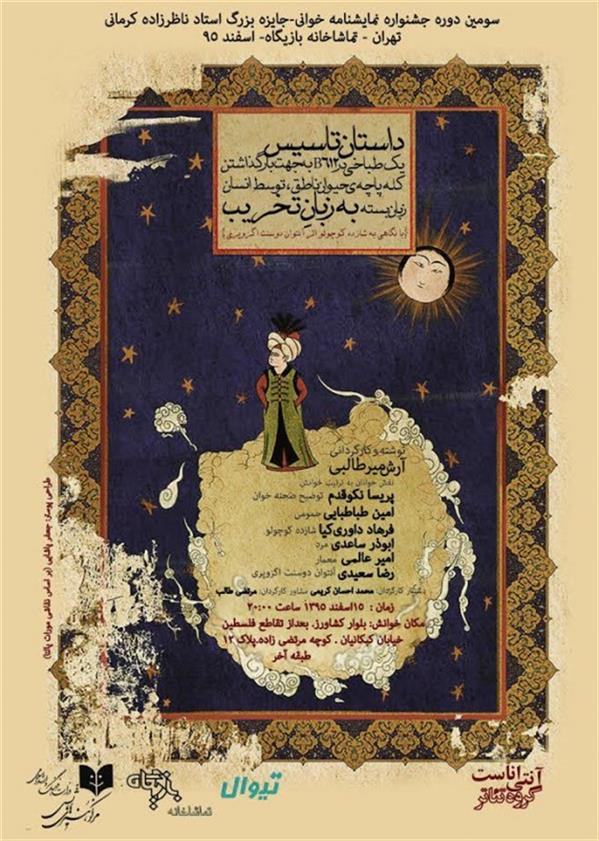 سومین دوره جشنواره نمایشنامه خوانی-جایزه بزرگ استاد ناظرزاده کرمانی
تهران - تماشاخانه بازیگاه- اسفند ۹۵
داستان تاسیس
یک طباخی در B۶۱۲ به جهت بار گذاشتن
کله پاچه ی حیوان ناطق، توسط انسان
زبان بسته به زبان تخریب
(با نگاهی به شازده کوچولو اثر آنتوان دوسنت اگزوپری)
نوشته و کارگردانی
آرش میرطالبی
نقش خوانان به ترتیب خوانش
پریسا نکوقدم توضیح صحنه خوان
امین طباطبایی
فرهاد داوری کیا شازده کوچولو
ابوذر ساعدی مرد
امیر عالمی معمار
رضا سعیدی آنتوان دوسنت اگزوپری
دستیار کارگردان: محمد احسان کریمی مشاور کارگردان: مرتضی طالب
زمان : ۱۵اسفند ۱۳۹۵ ساعت ۲۰:۰۰
مکان خوانش: بلوار کشاورز. بعداز تقاطع فلسطین
خیابان کبکانیان . کوچه مرتضی زاده.پلاک ۱۲
طبقه آخر
طراحی پوستر: جعفر پاشایی (بر اساس نقاشی مورات پالتا)
بازیگاه
تماشاخانه
تیوال
آنتی اناست
گروه تئاتر